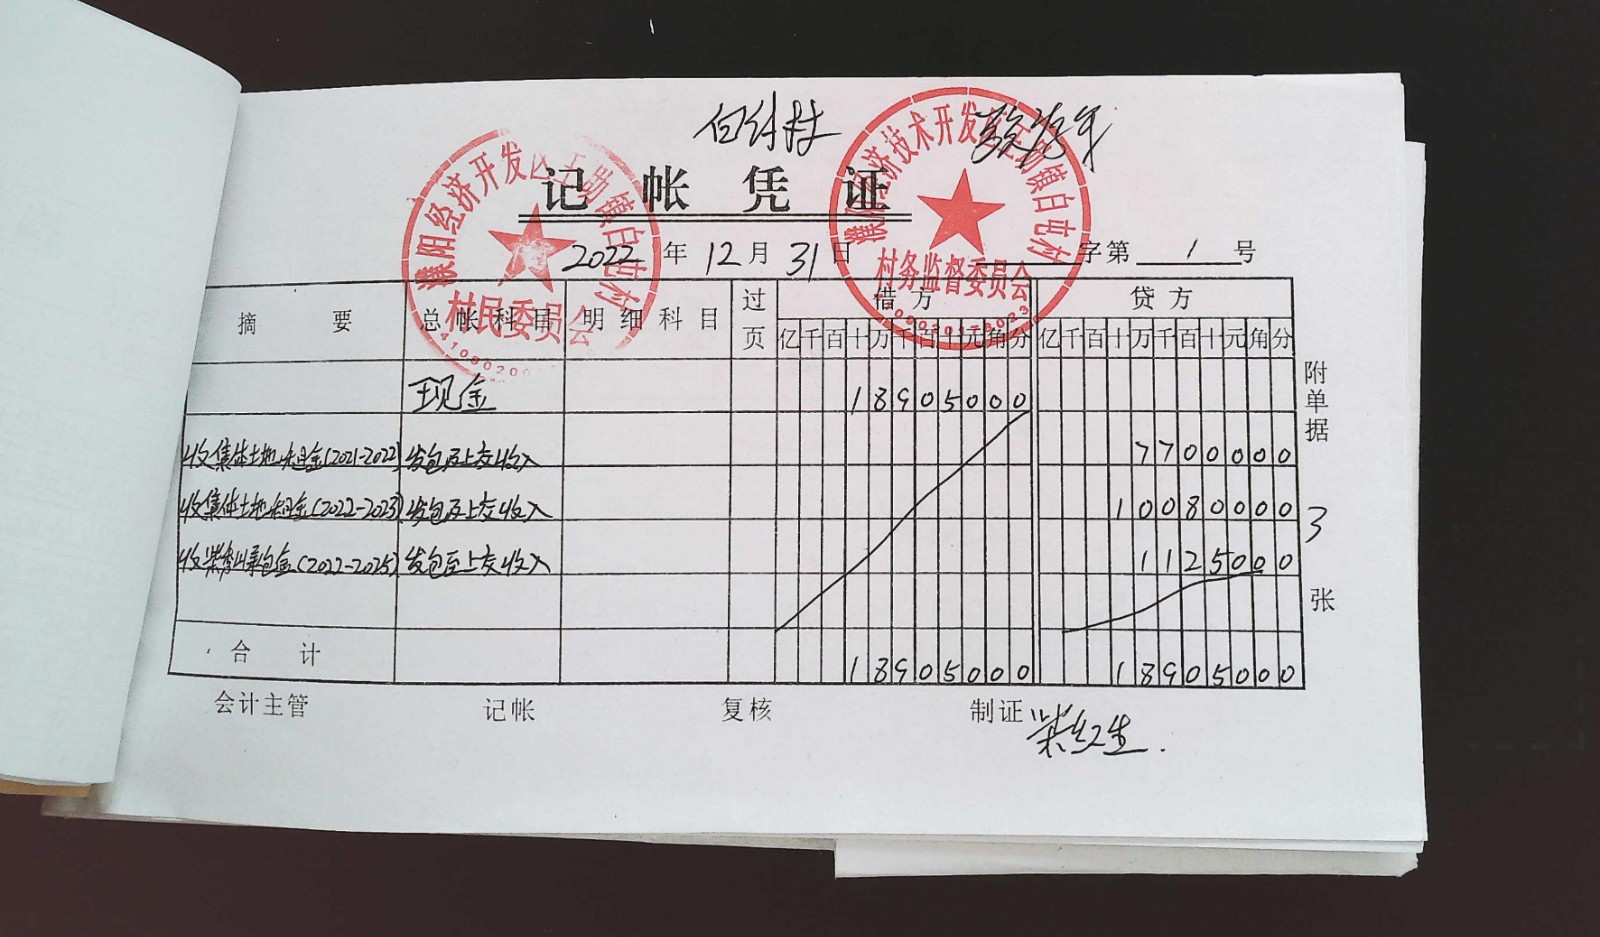 白村
濮阳经济开发区王助镇白屯村
村民委员会
濮阳经济技术开发区王助镇白屯村
村务监督委员会
记帐凭证
2022年12月31日
字第1号
摘要 总帐科目 明细科目 过页 借方 贷方
亿千百十万千百十元角分 亿千百十万千百十元角分
现金 18905000
收集体土地租金(2021-2022) 发包及上交收入 7700000
收集体土地租金(2022-2023) 发包及上交收入 10080000
收承包金(2022-2025) 发包及上交收入 1125000
合计 18905000 18905000
附单据3张
会计主管 记帐 复核 制证